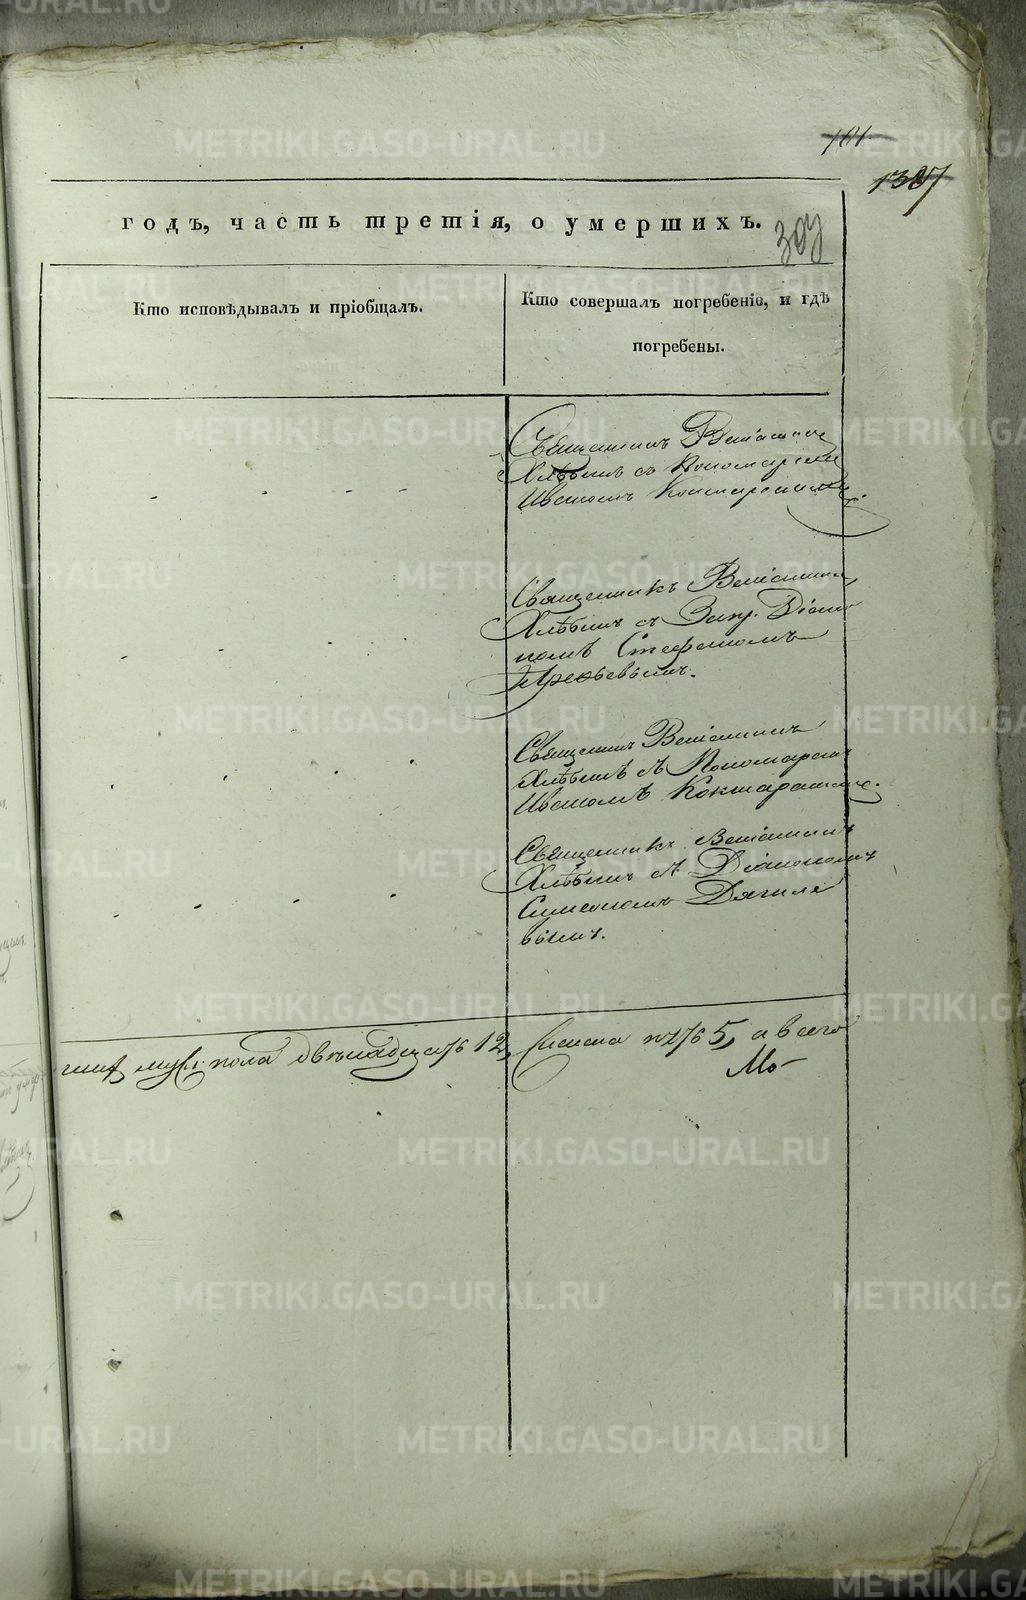 101
1387
годъ, часть третія, о умершихъ.
309
Кто исповѣдывалъ и пріобщалъ.
Кто совершалъ погребеніе, и гдѣ
погребены.
Священникъ Веніаминъ
Хлѣбинъ съ Пономаремъ
Иваномъ
Священникъ Веніаминъ
Хлѣбинъ съ Діако
номъ Стефаномъ
Священникъ Веніаминъ
Хлѣбинъ съ Пономаремъ
Иваномъ Кокшарскимъ.
Священникъ Веніаминъ
Хлѣбинъ съ Діакономъ
Симеономъ Дягиле
вымъ.
муж. пола двенадцать 12, женска пять 5, а всего
METRIKI.GASO-URAL.RU